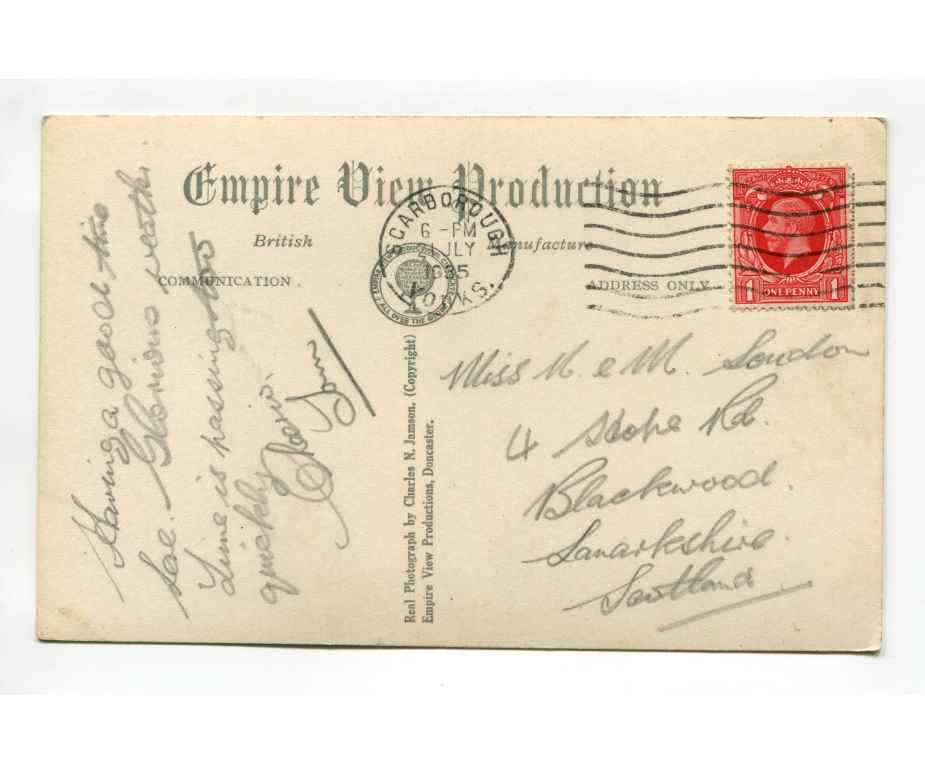 Empire View Production
British Manufacture
COMMUNICATION.
ADDRESS ONLY
SCARBOROUGH
6 - PM
JULY
YORKS.
ONE PENNY
1 1
Having a good time
Glorious weather
Time is passing too
quickly.
Cheerio.
Tom
Real Photograph by Charles N. Jamson. (Copyright)
Empire View Productions, Doncaster.
ALL OVER THE
Miss N. & M. Loudon
4 Rd.
Blackwood.
Lanarkshire.
Scotland